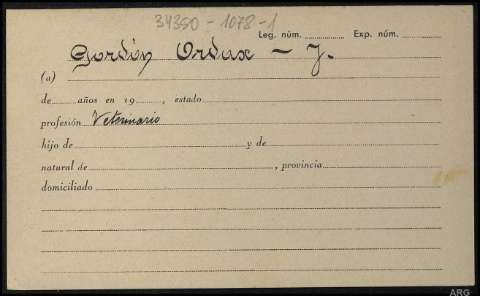 34350-1078-1
Leg. núm. Exp. núm.
Gordón Ordax - J.
(a)
de años en 19 , estado
profesión Veterinario
hijo de y de
natural de , provincia
domiciliado
ARG